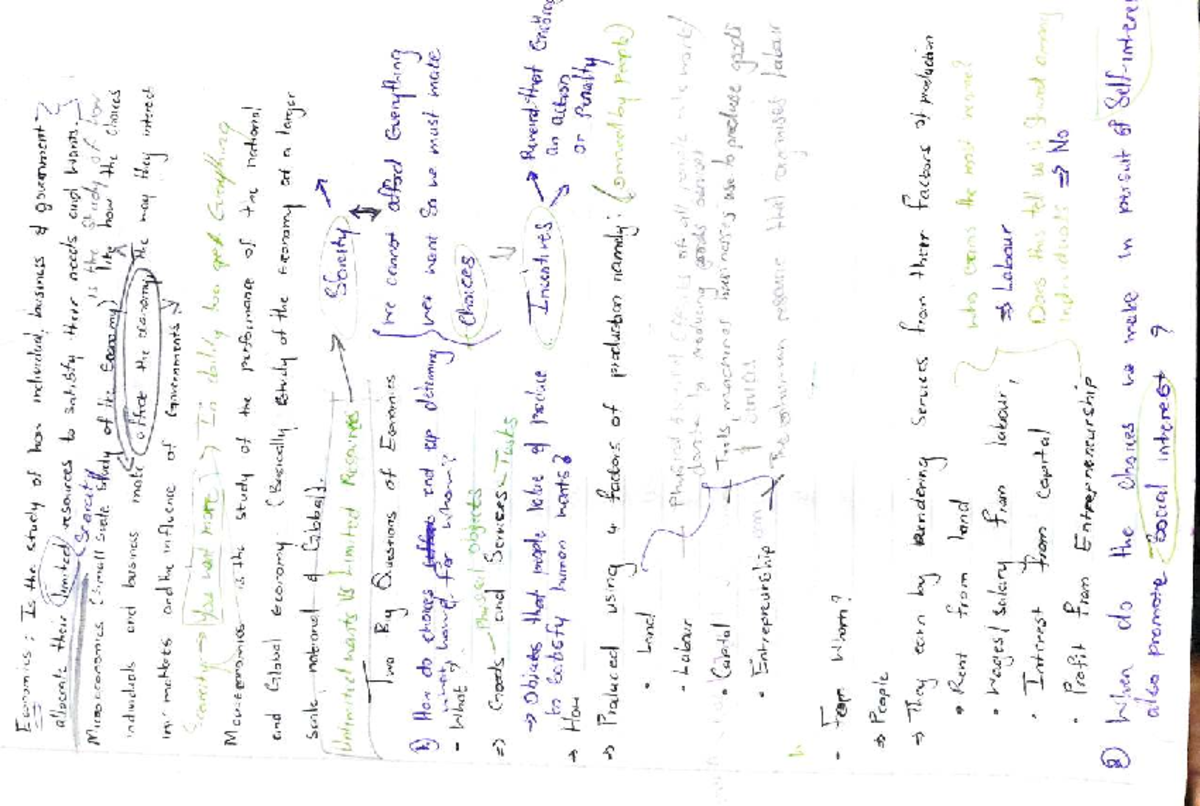 Economics : Is the study of how individual, business & government
allocate their limited resources to satisfy their needs and wants.
Scarcity
Microeconomics (Small scale study of the Economy) is the study of how
like how the choices
individuals and business make affect the economy, the way they interact
in markets and the influence of Governments
Scarcity → You want more In daily too get Everything
Macroeconomics is the study of the performance of the national
and Global Economy. (Basically study of the Economy at a larger
scale national & Global).
Unlimited wants Vs Limited Resources → Scarcity
Two Big Questions of Economics
we cannot afford Everything
we want So we must make
Choices
1) How do choices end up determing
what, how & for whom?
- What?
⇒ Goods - Physical objects
and Services - Tasks
→ Objects that people value & produce
to satisfy human wants?
Incentives → Reward that Encourages
an action
or Penalty
→ How
⇒ Produced using 4 factors of production namely: (owned by people)
• Land
• Labour - Physical & mental efforts of all people
• Capital - Tools, machines businesses use to produce goods
& services
• Entrepreneurship → The human resource that organises labour
• For Whom?
⇒ People
⇒ They earn by Rendering Services from their factors of production
• Rent from land
• Wages/ Salary from labour,
• Interest from capital
• Profit from Entrepreneurship
who earns the most income?
⇒ Labour
Does this tell us is Shared among
individuals ⇒ No
2) When do the choices we make in pursuit of Self-interest
also promote Social interest ?